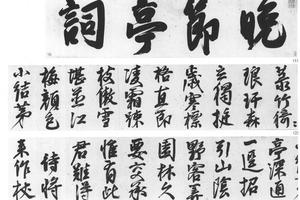 晚節亭詞
菉竹猗
琅玕森
立得挺
歲寒標
格直節
凌霜疎
枝傲雪
堪並江
梅顏色
小結茅
亭深通
一逕招
引山陰
野客弄
園林久
要交承
惟有此
君難得
待時將
來作杖